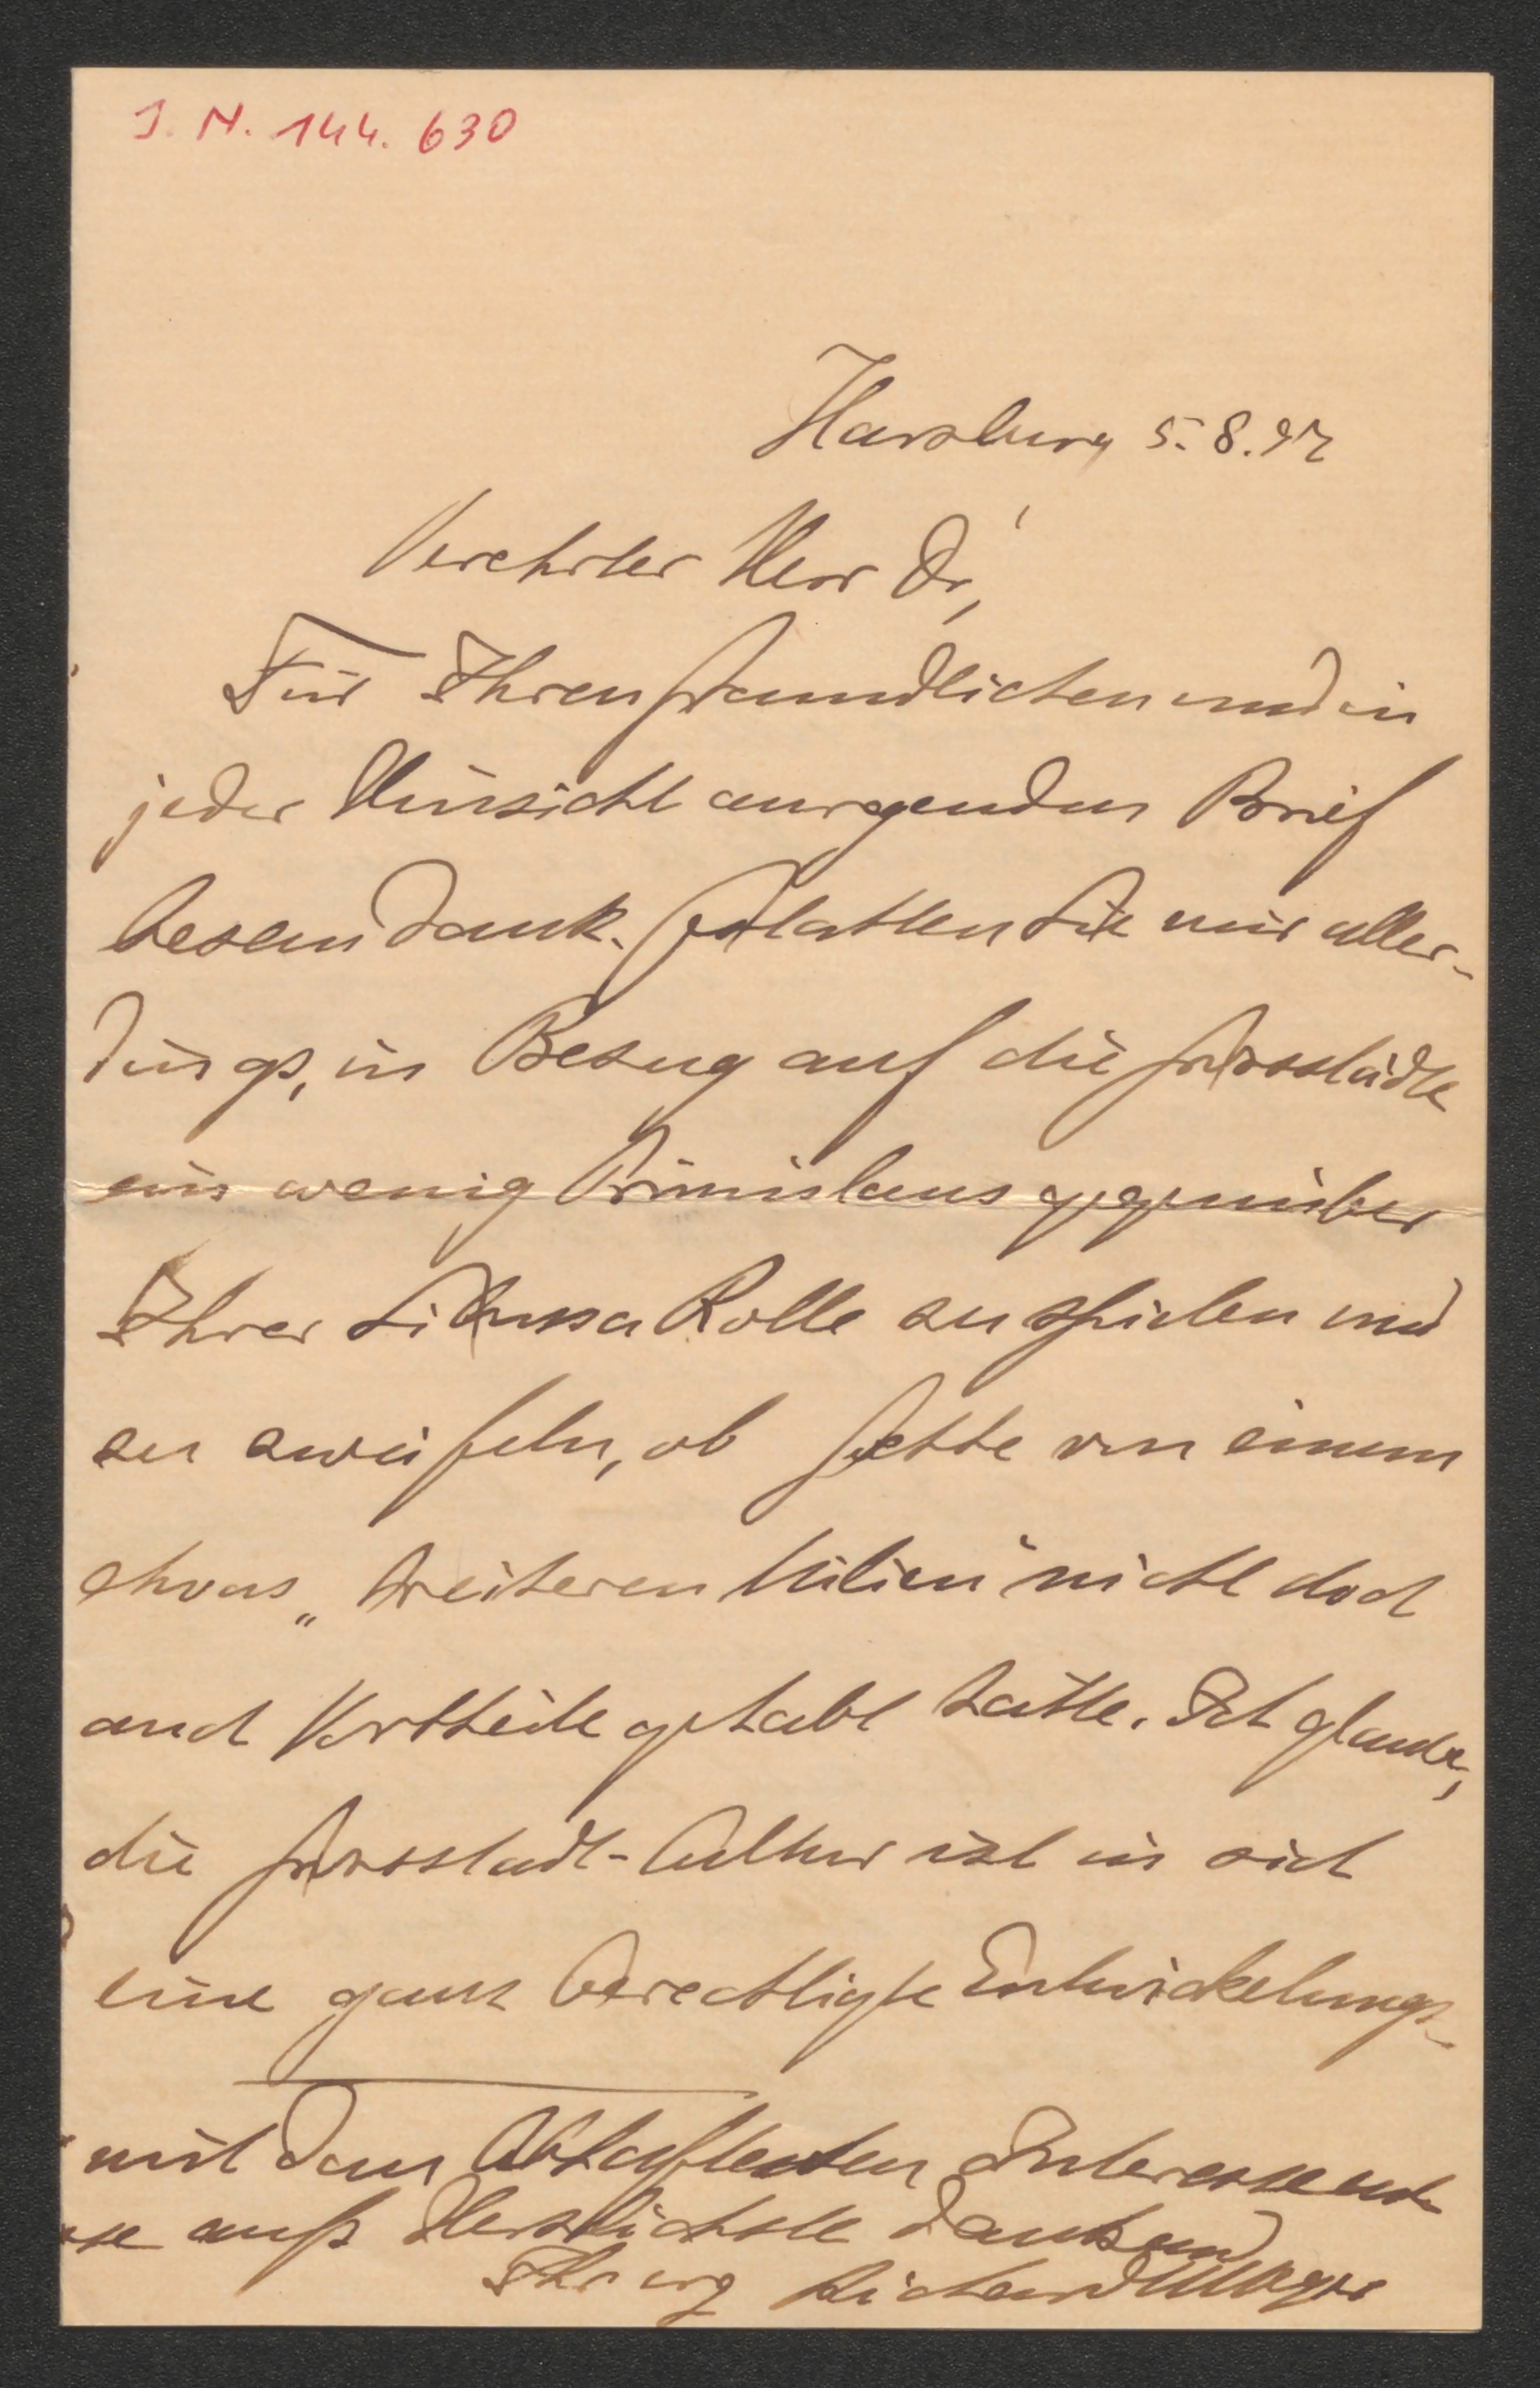 J. N. 144. 630
Harzburg 5. 8. 97
Verehrter Herr Dr,
Für Ihren freundlichen und in
jeder Hinsicht anregenden Brief
besten Dank. Gestatten Sie mir aller-
dings, in Bezug auf die Grossstädte
ein wenig Primislaus gegenüber
Ihrer Libussa Rolle zu spielen und
zu zweifeln, ob Goethe von einem
etwas „breiteren Milieu" nicht doch
auch Vortheile gehabt hätte. Ich glaube,
die Grossstadt-Cultur ist in sich
eine ganz berechtigte Entwickelungs-
mit dem lebhaftesten Interesse
aufs Herzlichste dankend
Ihr erg Richard M Meyer